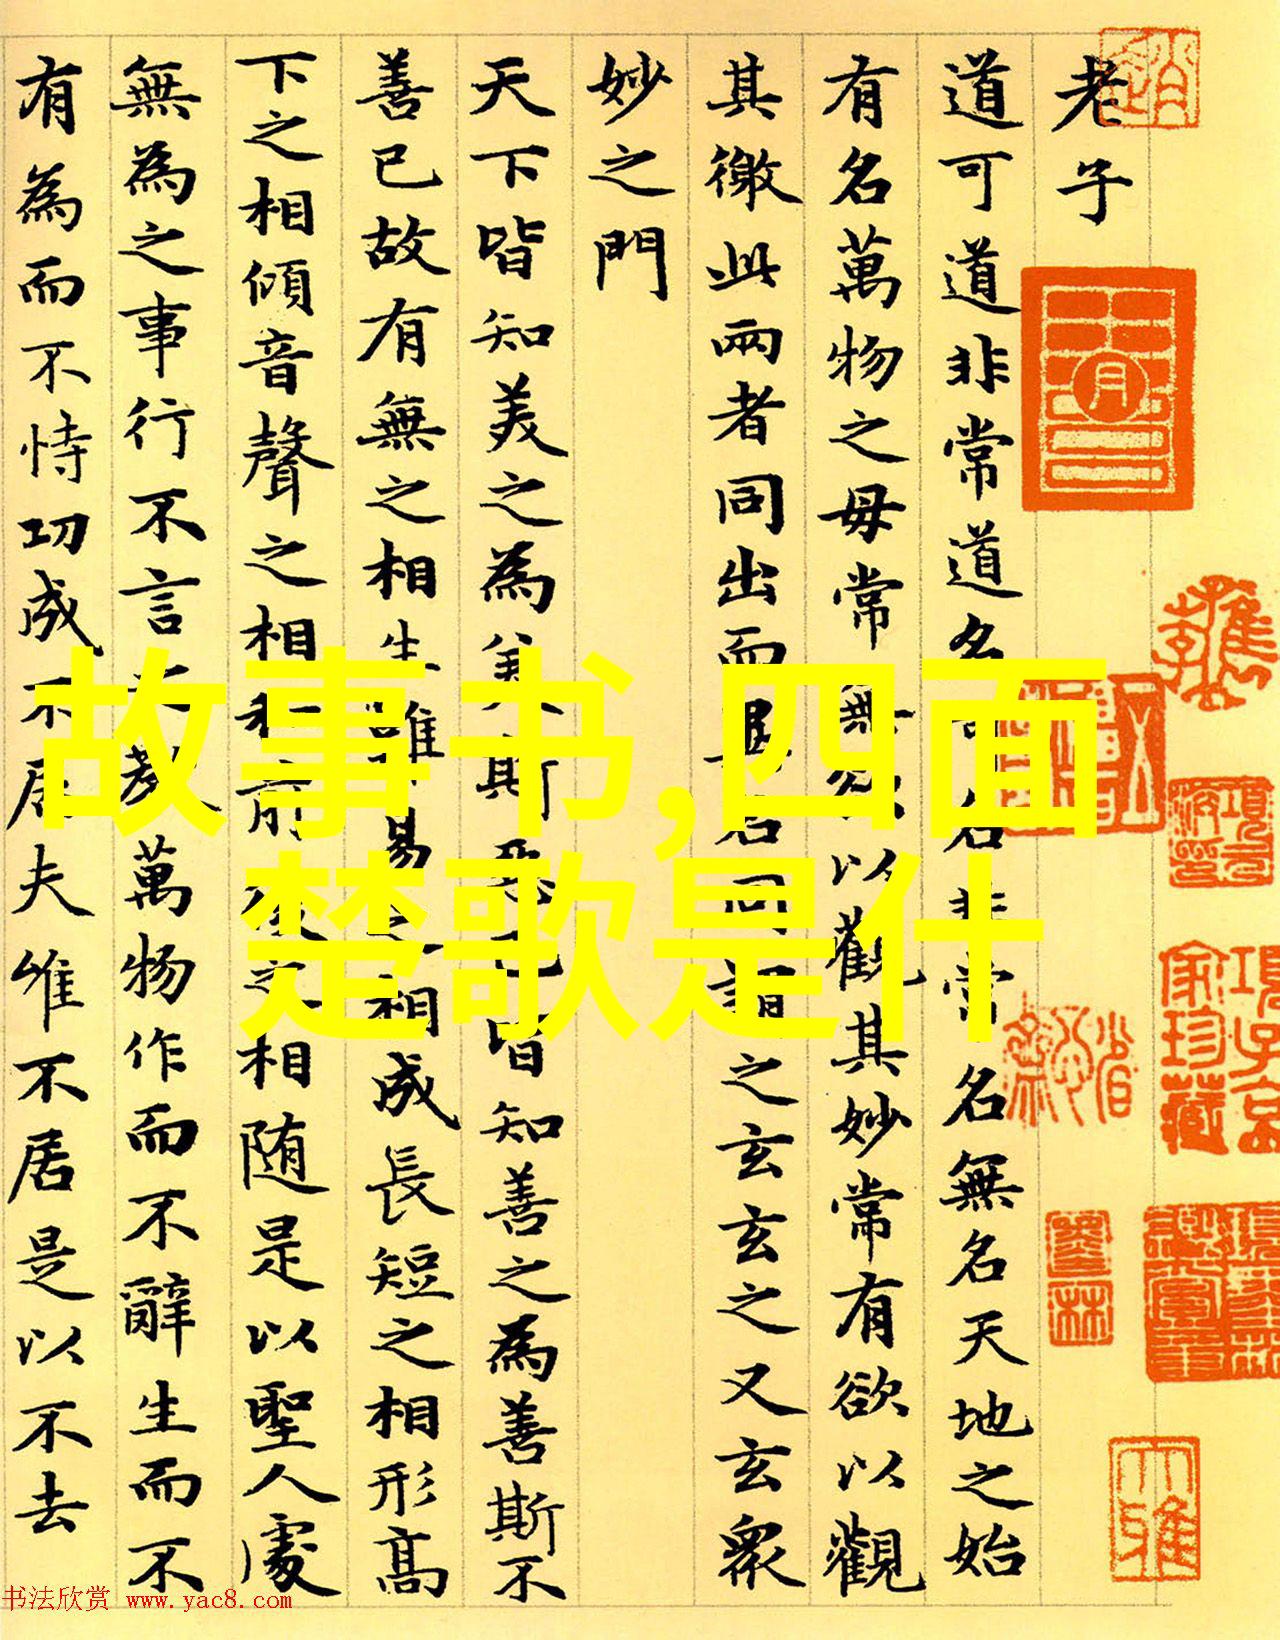 老子
道可道非常道名可名非常名無名天地之始
有名萬物之母常無欲以觀其妙常有欲以觀
其徼此兩者同出而異名同謂之玄玄之又玄衆
妙之門
天下皆知美之為美斯惡已皆知善之為善斯不
善已故有無之相生難易之相成長短之相形髙
下之相傾音聲之相和前後之相随是以聖人處
無為之事行不言之教萬物作而不辭生而不
有為而不恃功成不居夫唯不居是以不去
故事书,四面
楚歌是什
項子京
家珍藏
书法欣赏 www.yac8.com